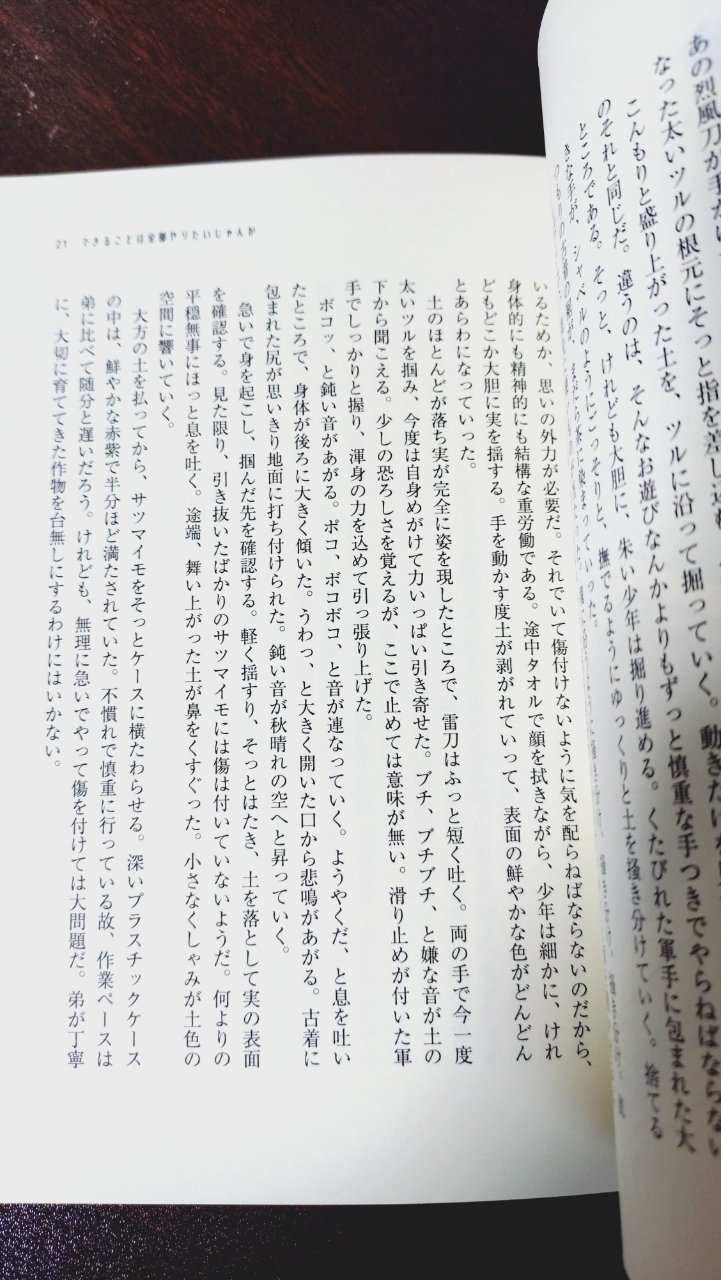 あの烈風刀が手
なった太いツルの根元にそっと指を差し
こんもりと盛り上がった土を、ツルに沿って掘っていく。動きだけな
のそれと同じだ。違うのは、そんなお遊びなんかよりもずっと慎重な手つきでやらねばならない
ところである。そっと、けれども大胆に、朱い少年は掘り進める。くたびれた軍手に包まれた大
きな手が、シャベルのようにごっそりと、撫でるようにゆっくりと土を掻き分けていく。捨てる
21 できることは全部やりたいじゃんか
いるためか、思いの外力が必要だ。それでいて傷付けないように気を配らねばならないのだから、
身体的にも精神的にも結構な重労働である。途中タオルで顔を拭きながら、少年は細かに、けれ
どもどこか大胆に実を揺する。手を動かす度土が剥がれていって、表面の鮮やかな色がどんどん
とあらわになっていった。
土のほとんどが落ち実が完全に姿を現したところで、雷刀はふっと短く吐く。両の手で今一度
太いツルを掴み、今度は自身めがけて力いっぱい引き寄せた。ブチ、ブチブチ、と嫌な音が土の
下から聞こえる。少しの恐ろしさを覚えるが、ここで止めては意味が無い。滑り止めが付いた軍
手でしっかりと握り、渾身の力を込めて引っ張り上げた。
ボコッ、と鈍い音があがる。ボコ、ボコボコ、と音が連なっていく。ようやくだ、と息を吐い
たところで、身体が後ろに大きく傾いた。うわっ、と大きく開いた口から悲鳴があがる。古着に
包まれた尻が思いきり地面に打ち付けられた。鈍い音が秋晴れの空へと昇っていく。
急いで身を起こし、掴んだ先を確認する。軽く揺すり、そっとはたき、土を落として実の表面
を確認する。見た限り、引き抜いたばかりのサツマイモには傷は付いていないようだ。何よりの
平穏無事にほっと息を吐く。途端、舞い上がった土が鼻をくすぐった。小さなくしゃみが土色の
空間に響いていく。
大方の土を払ってから、サツマイモをそっとケースに横たわらせる。深いプラスチックケース
の中は、鮮やかな赤紫で半分ほど満たされていた。不慣れで慎重に行っている故、作業ペースは
弟に比べて随分と遅いだろう。けれども、無理に急いでやって傷を付けては大問題だ。弟が丁寧
に、大切に育ててきた作物を台無しにするわけにはいかない。